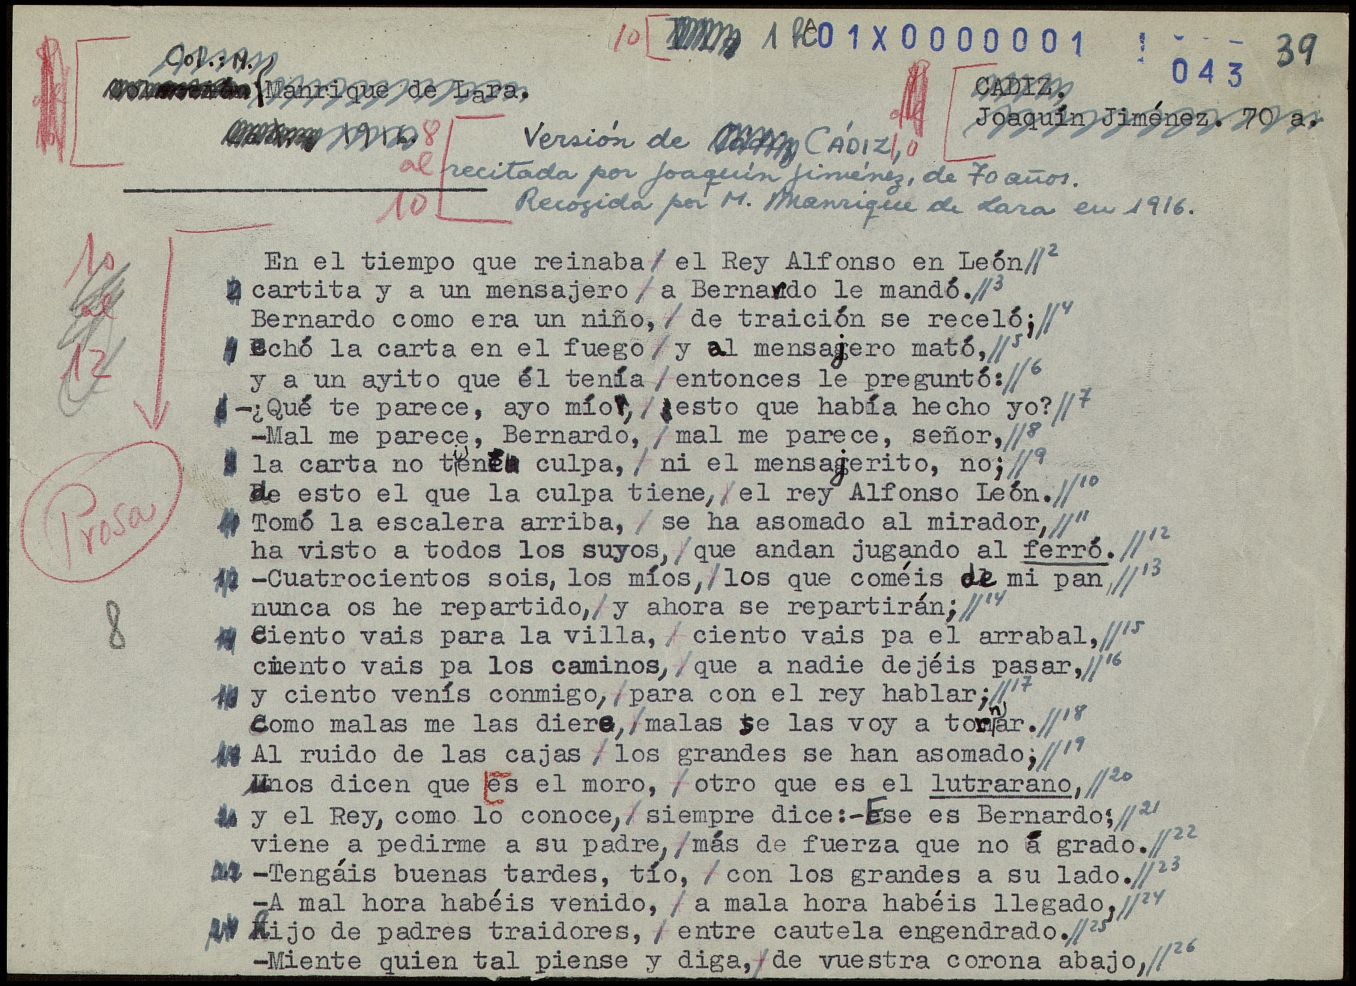 10 1 01X0000001 043 39
Col.: M.
Manrique de Lara.
1916. 8 al 10
CADIZ.
Joaquín Jiménez. 70 a.
10
Versión de CÁDIZ,
recitada por Joaquín Jiménez, de 70 años.
Recogida por M. Manrique de Lara en 1916.
10 al 12
Prosa
8
En el tiempo que reinaba / el Rey Alfonso en León // 2
2 cartita y a un mensajero / a Bernardo le mandó. // 3
Bernardo como era un niño, / de traición se receló; // 4
4 echó la carta en el fuego / y al mensajero mató, // 5
y a un ayito que él tenía / entonces le preguntó: // 6
6 -¿Qué te parece, ayo mío, / esto que había hecho yo? // 7
-Mal me parece, Bernardo, / mal me parece, señor, // 8
8 la carta no tiene culpa, / ni el mensajerito, no; // 9
de esto el que la culpa tiene, / el rey Alfonso León. // 10
10 Tomó la escalera arriba, / se ha asomado al mirador, // 11
ha visto a todos los suyos, / que andan jugando al ferró. // 12
12 -Cuatrocientos sois, los míos, / los que coméis de mi pan // 13
nunca os he repartido, / y ahora se repartirán; // 14
14 ciento vais para la villa, / ciento vais pa el arrabal, // 15
ciento vais pa los caminos, / que a nadie dejéis pasar, // 16
16 y ciento venís conmigo, / para con el rey hablar; // 17
como malas me las diere, / malas se las voy a tornar. // 18
18 Al ruido de las cajas / los grandes se han asomado; // 19
unos dicen que es el moro, / otro que es el lutrarano, // 20
20 y el Rey, como lo conoce, / siempre dice:-Ese es Bernardo; // 21
viene a pedirme a su padre, / más de fuerza que no á grado. // 22
22 -Tengáis buenas tardes, tío, / con los grandes a su lado. // 23
-A mal hora habéis venido, / a mala hora habéis llegado, // 24
24 hijo de padres traidores, / entre cautela engendrado. // 25
-Miente quien tal piense y diga, / de vuestra corona abajo, // 26